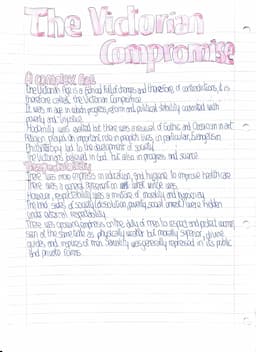 The Victorian
Compromise
A complex Age
The Victorian Age is a period full of changes and therefore, of contradictions, it is
therefore called the Victorian Compromise
It was an era in which progress, reform and political stability coexisted with
poverty and injustice
Modernity was exalted but there was a revival of Gothic and Classicism in art
Religion played an important role in people's lives, in particular, Evangelism
Philanthropy led to the development of society
The Victorians believed in God but also in progress and science
Respectability
There was more emphasis on education, and hygiene to improve health care
There was a general agreement on what virtue was
However, respectability was a mixture of morality and hypocrisy
The bad sides of society (dissolution, poverty, social unrest) were hidden
under external respectability
There was growing emphasis on the duty of men to respect and protect women,
seen at the same time as physically weaker but morally superior, divine
guides and inspirers of men. Sexuality was generally repressed in its public
and private forms